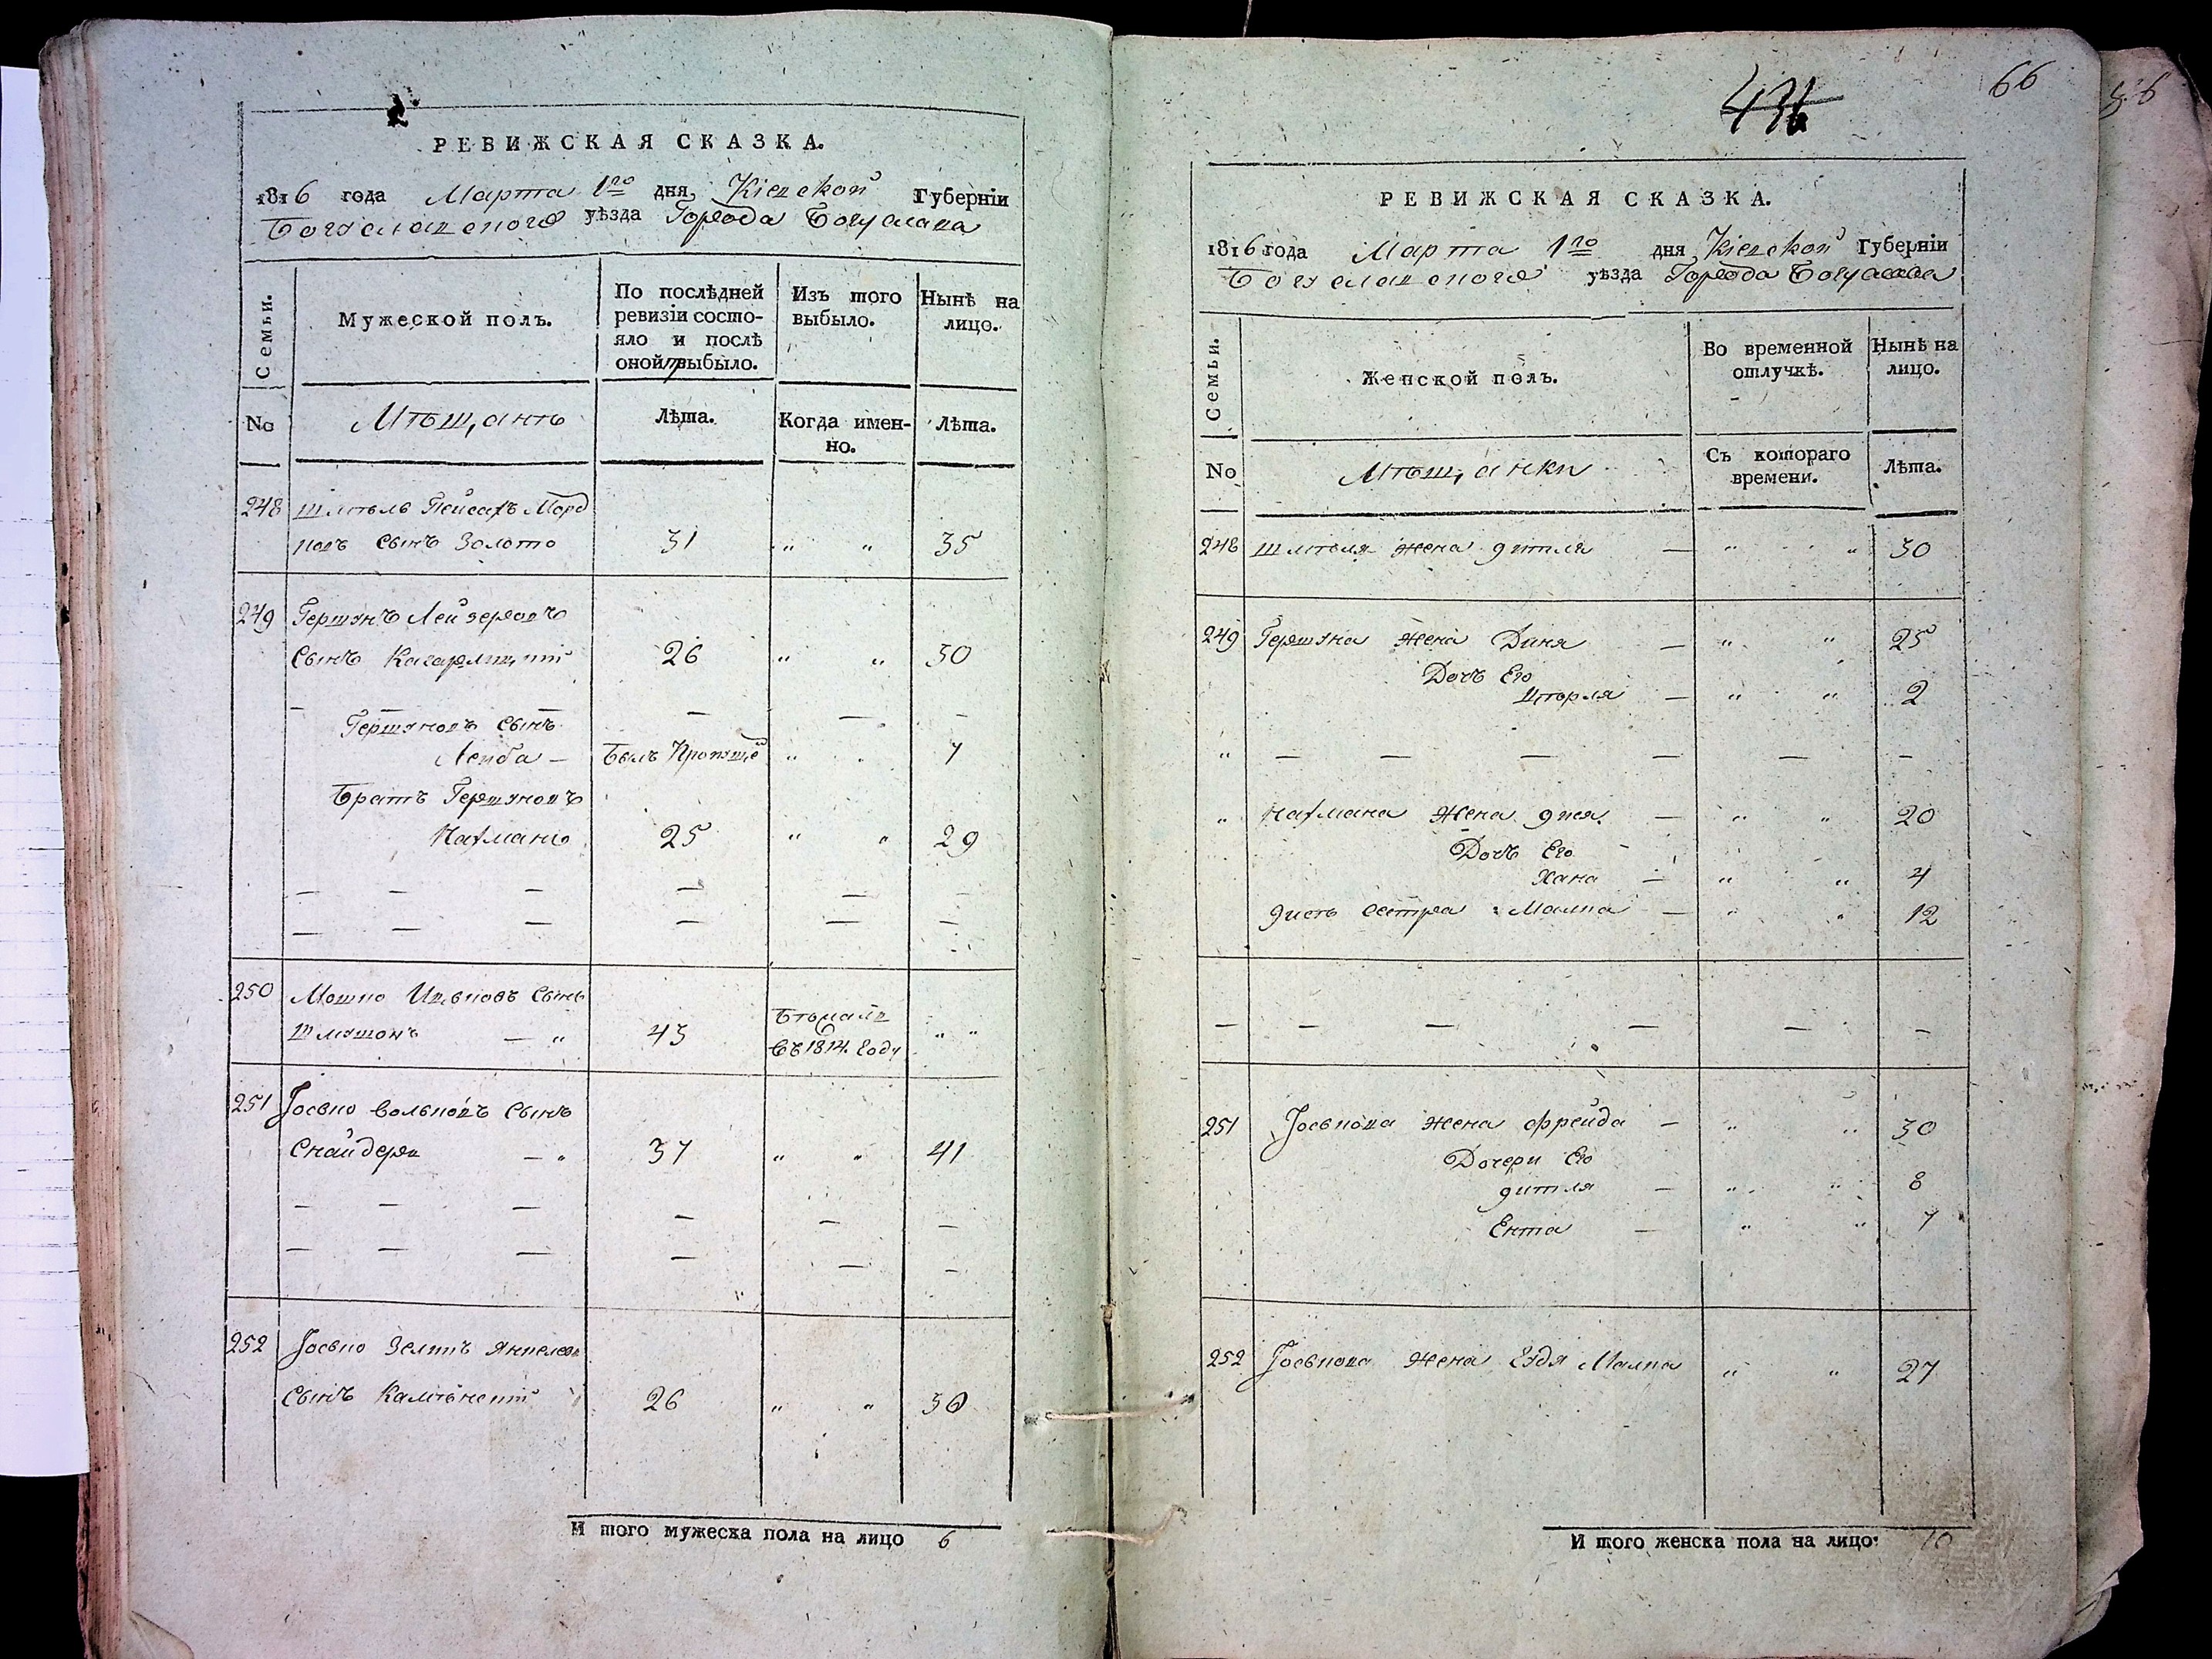 РЕВИЖСКАЯ СКАЗКА.
1816 года Марта 1го дня, Кіевской Губерніи
Богуславского уѣзда Города Богуслава
Семьи.
Мужеской полъ.
По послѣдней ревизіи состо-
яло и послѣ
оной выбыло.
Изъ того выбыло.
Нынѣ на лицо.
No
Мѣщанъ
Лѣта.
Когда имен-
но.
Лѣта.
248 Пейсахъ Морд
ковъ сынъ Золото 31 " " 35
249 Гершонъ Лейзеровъ
сынъ 26 " " 30
Гершоновъ сынъ
Лейба — былъ " 7
Братъ Гершоновъ
Нахманъ 25 " " 29
250 Мошко Ицковъ сынъ
— " 43 Бѣжалъ въ 1814. году " "
251 Іосько Вольковъ сынъ
Снайдеръ — " 37 " " 41
252 Іосько Зелигъ Янкелевъ
сынъ 26 " " 30
И того мужеска пола на лицо 6
436
66
РЕВИЖСКАЯ СКАЗКА.
1816 года Марта 1го дня, Кіевской Губерніи
Богуславского уѣзда Города Богуслава
Семьи.
Женской полъ.
Во временной отлучкѣ.
Нынѣ на лицо.
No
Мѣщанки
Съ котораго времени.
Лѣта.
248 жена — " " 30
249 Гершона жена Диня — " " 25
Дочь Его
— " " 2
" — — — — — —
" Нахмана жена — " " 20
Дочь Его
Хана — " " 4
сестра Малка — " " 12
— — — — — —
251 Іоськова жена Фрейда — " " 30
Дочери Его
— " " 8
Ента — " " 7
252 Іоськова жена Малка " " 27
И того женска пола на лицо: 10